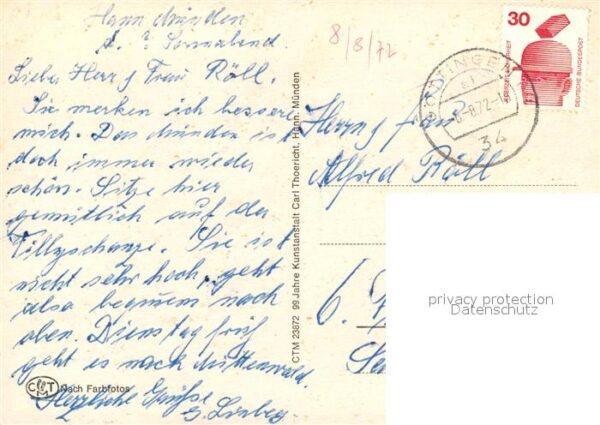 Hann Münden
d. ? Sonnabend.
Liebe Herr u Frau Röll.
Sie merken ich bessere
mich. Das Münden ist
doch immer wieder
schön. Sitze hier
gemütlich auf der
Tillyschanze. Sie ist
nicht sehr hoch, geht
also bequem nach
oben. Dienstag früh
geht es nach Mittenwald.
Herzliche Grüße
Nach Farbfotos
CTM 23872 99 Jahre Kunstanstalt Carl Thoericht, Hann. Münden
8/8/72
30
DEUTSCHE BUNDESPOST
GÖTTINGEN
34
Herrn u Frau
Alfred Röll
6.
privacy protection
Datenschutz